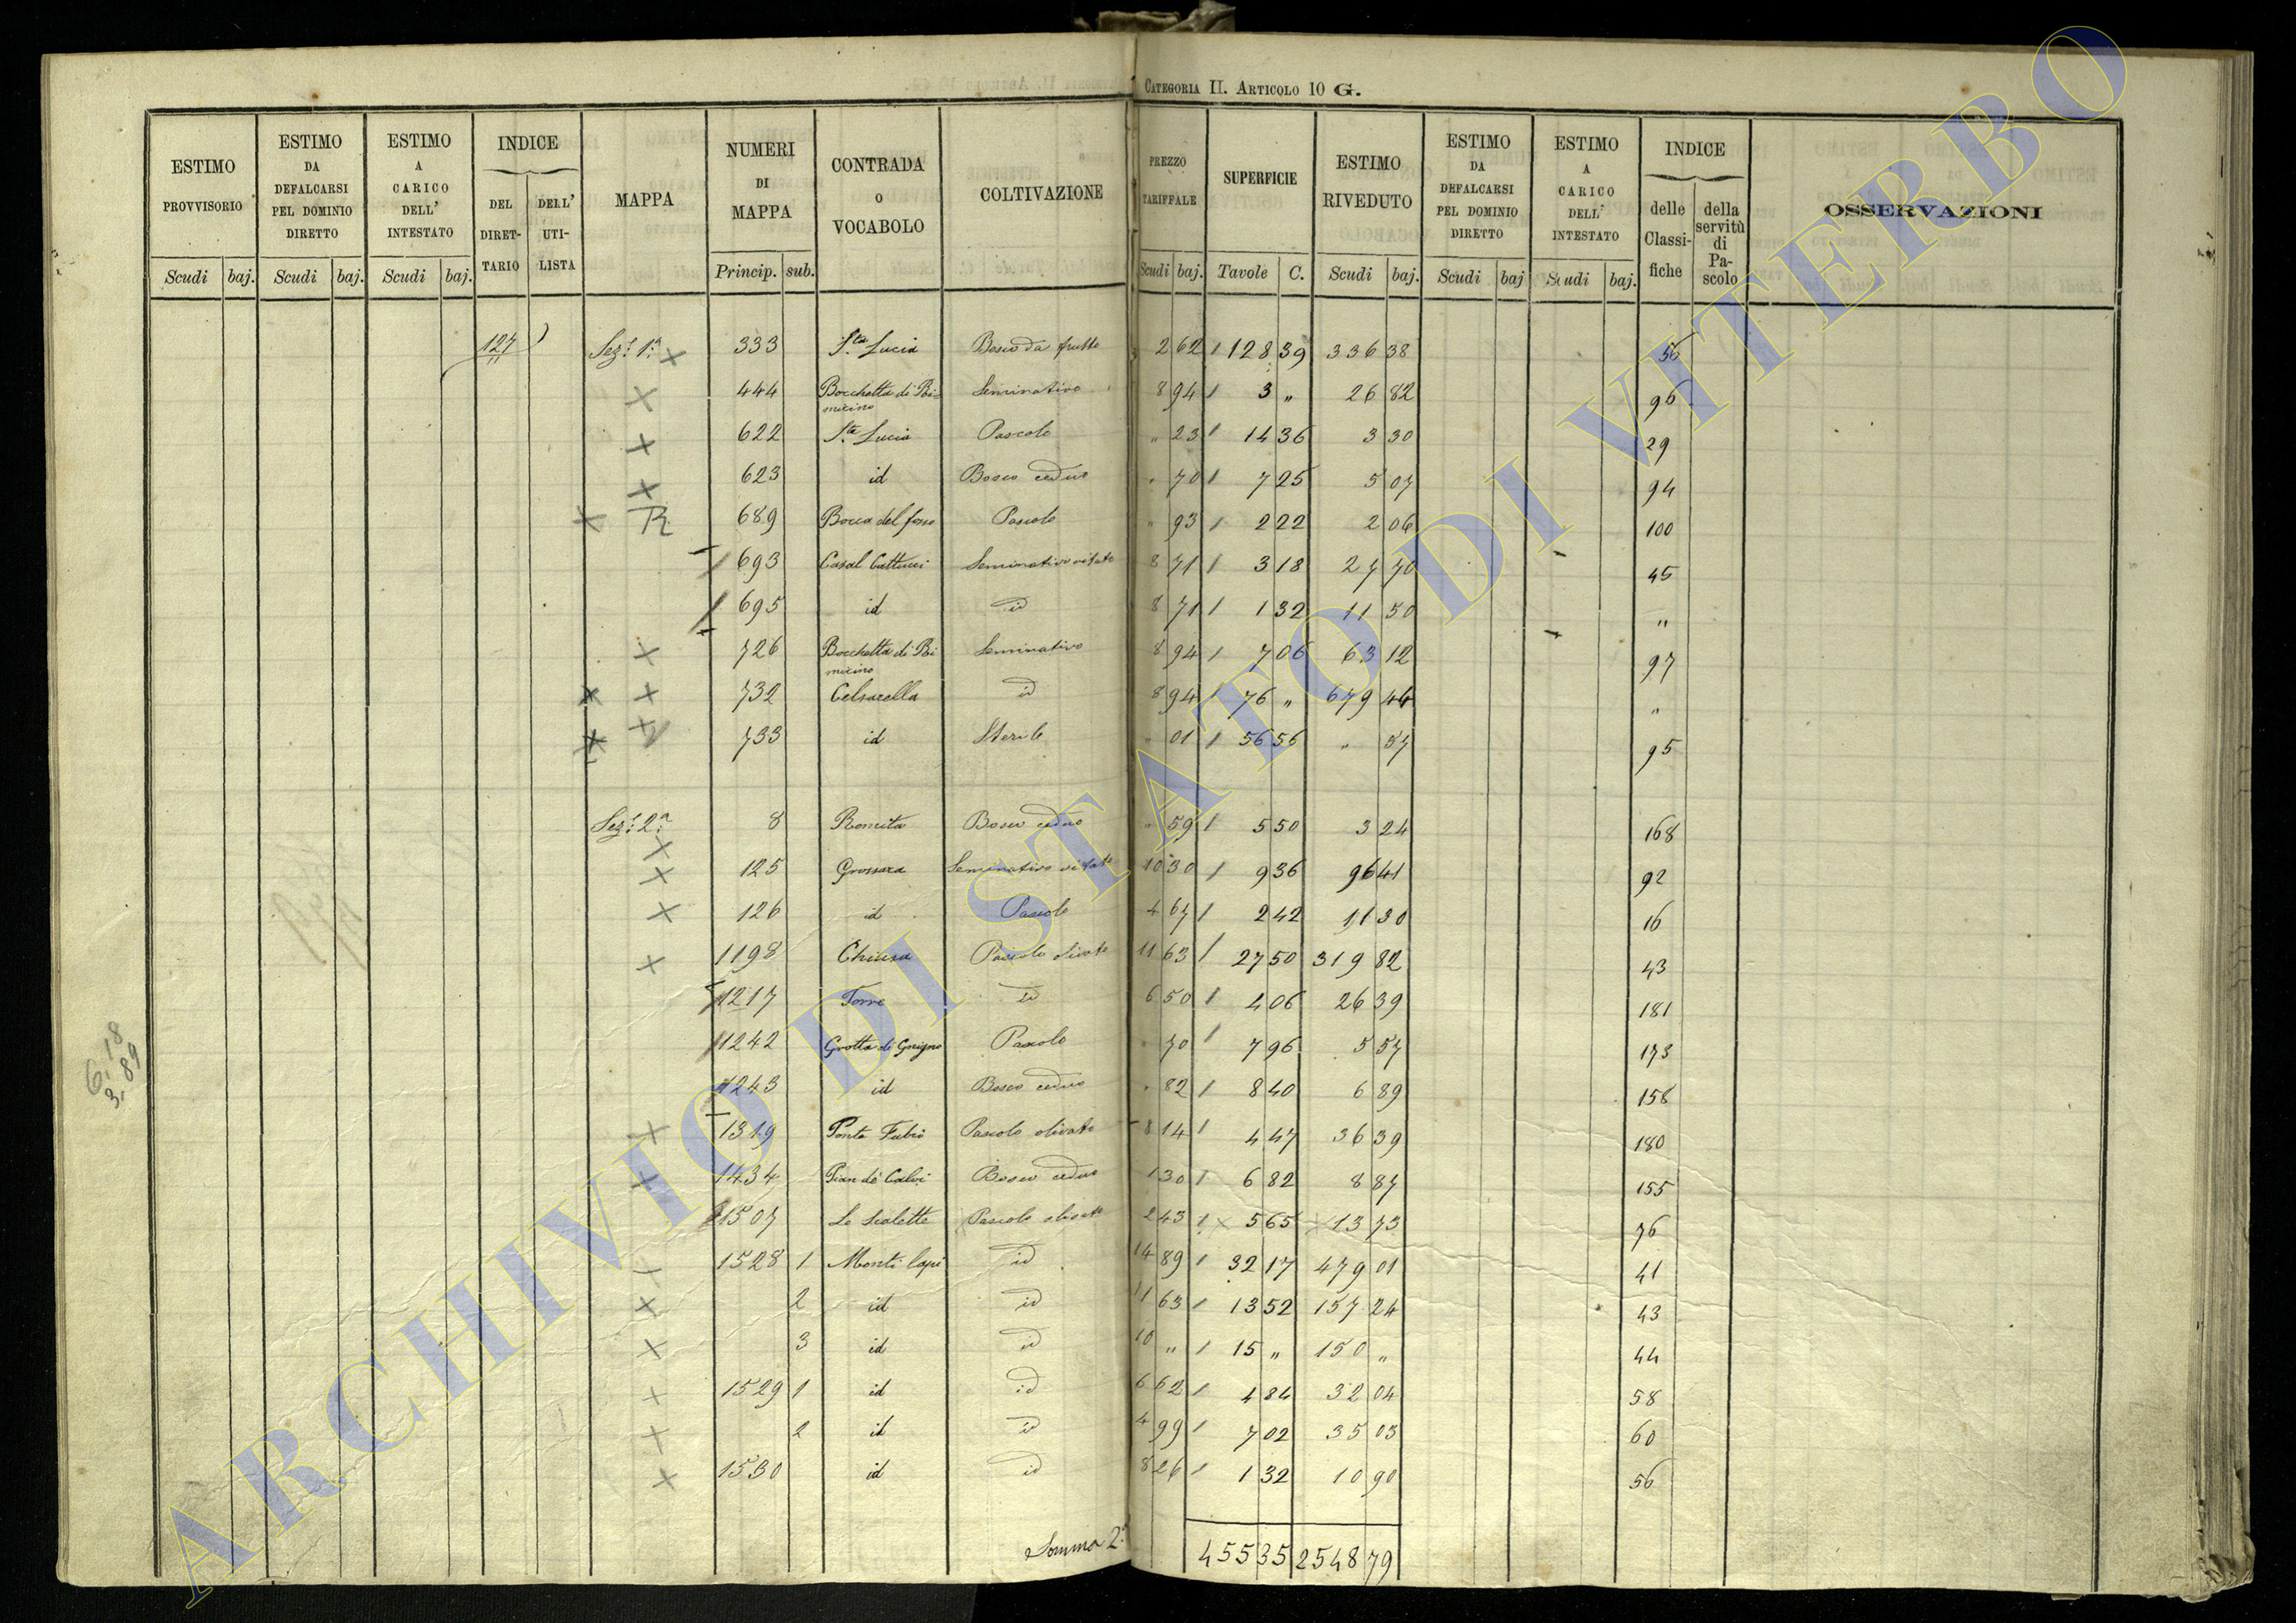 CATEGORIA II. ARTICOLO 10 G.
ESTIMO PROVVISORIO | ESTIMO DA DEFALCARSI PEL DOMINIO DIRETTO | ESTIMO A CARICO DELL' INTESTATO | INDICE | MAPPA | NUMERI DI MAPPA | CONTRADA O VOCABOLO | COLTIVAZIONE | PREZZO TARIFFALE | SUPERFICIE | ESTIMO RIVEDUTO | ESTIMO DA DEFALCARSI PEL DOMINIO DIRETTO | ESTIMO A CARICO DELL' INTESTATO | INDICE | OSSERVAZIONI
DEL DIRETTARIO | DELL' UTILISTA | delle Classifiche | della servitù di Pascolo
Scudi baj. | Scudi baj. | Scudi baj. | Princip. sub. | Scudi baj. | Tavole C. | Scudi baj. | Scudi baj | Scudi baj.
127 Sez. 1a X 333 Sta Lucia Bosco da frutto 2 62 128 39 336 38 56
X 444 Bocchetta di Rimicino Seminativo 8 94 3 " 26 82 96
X 622 Sta Lucia Pascolo " 23 14 36 3 30 29
X 623 id Bosco ceduo " 70 7 25 5 07 94
X R 689 Bocca del fosso Pascolo " 93 2 22 2 06 100
693 Casal Cattucci Seminativo vitato 8 71 3 18 27 70 45
695 id id 8 71 1 32 11 50 "
X 726 Bocchetta di Rimicino Seminativo 8 94 7 06 63 12 97
X X 732 Celsarella id 8 94 76 " 679 44 "
X X 733 id Sterile " 01 56 56 " 57 95
Sez. 2a X 8 Romita Bosco ceduo " 59 5 50 3 24 168
X 125 Grossara Seminativo vitato 10 30 9 36 96 41 92
X 126 id Pascolo 4 67 2 42 11 30 16
X 1198 Chiusa Pascolo olivato 11 63 27 50 319 82 43
1217 Torre id 6 50 4 06 26 39 181
1242 Grotta di Grigno Pascolo " 70 7 96 5 57 173
1243 id Bosco ceduo " 82 8 40 6 89 156
X 1319 Ponte Fabio Pascolo olivato 8 14 4 47 36 39 180
X 1434 Pian de' Calvi Bosco ceduo 1 30 6 82 8 87 155
1507 Le Scalette Pascolo olivato 2 43 X 5 65 13 73 76
1528 1 Monti Capi id 14 89 32 17 479 01 41
X 2 id id 11 63 13 52 157 24 43
X 3 id id 10 " 15 " 150 " 44
X 1529 1 id id 6 62 4 84 32 04 58
X 2 id id 4 99 7 02 35 03 60
X 1530 id id 8 26 1 32 10 90 56
Somma 2a 455 35 2548 79
6,18
3,89
ARCHIVIO DI STATO DI VITERBO